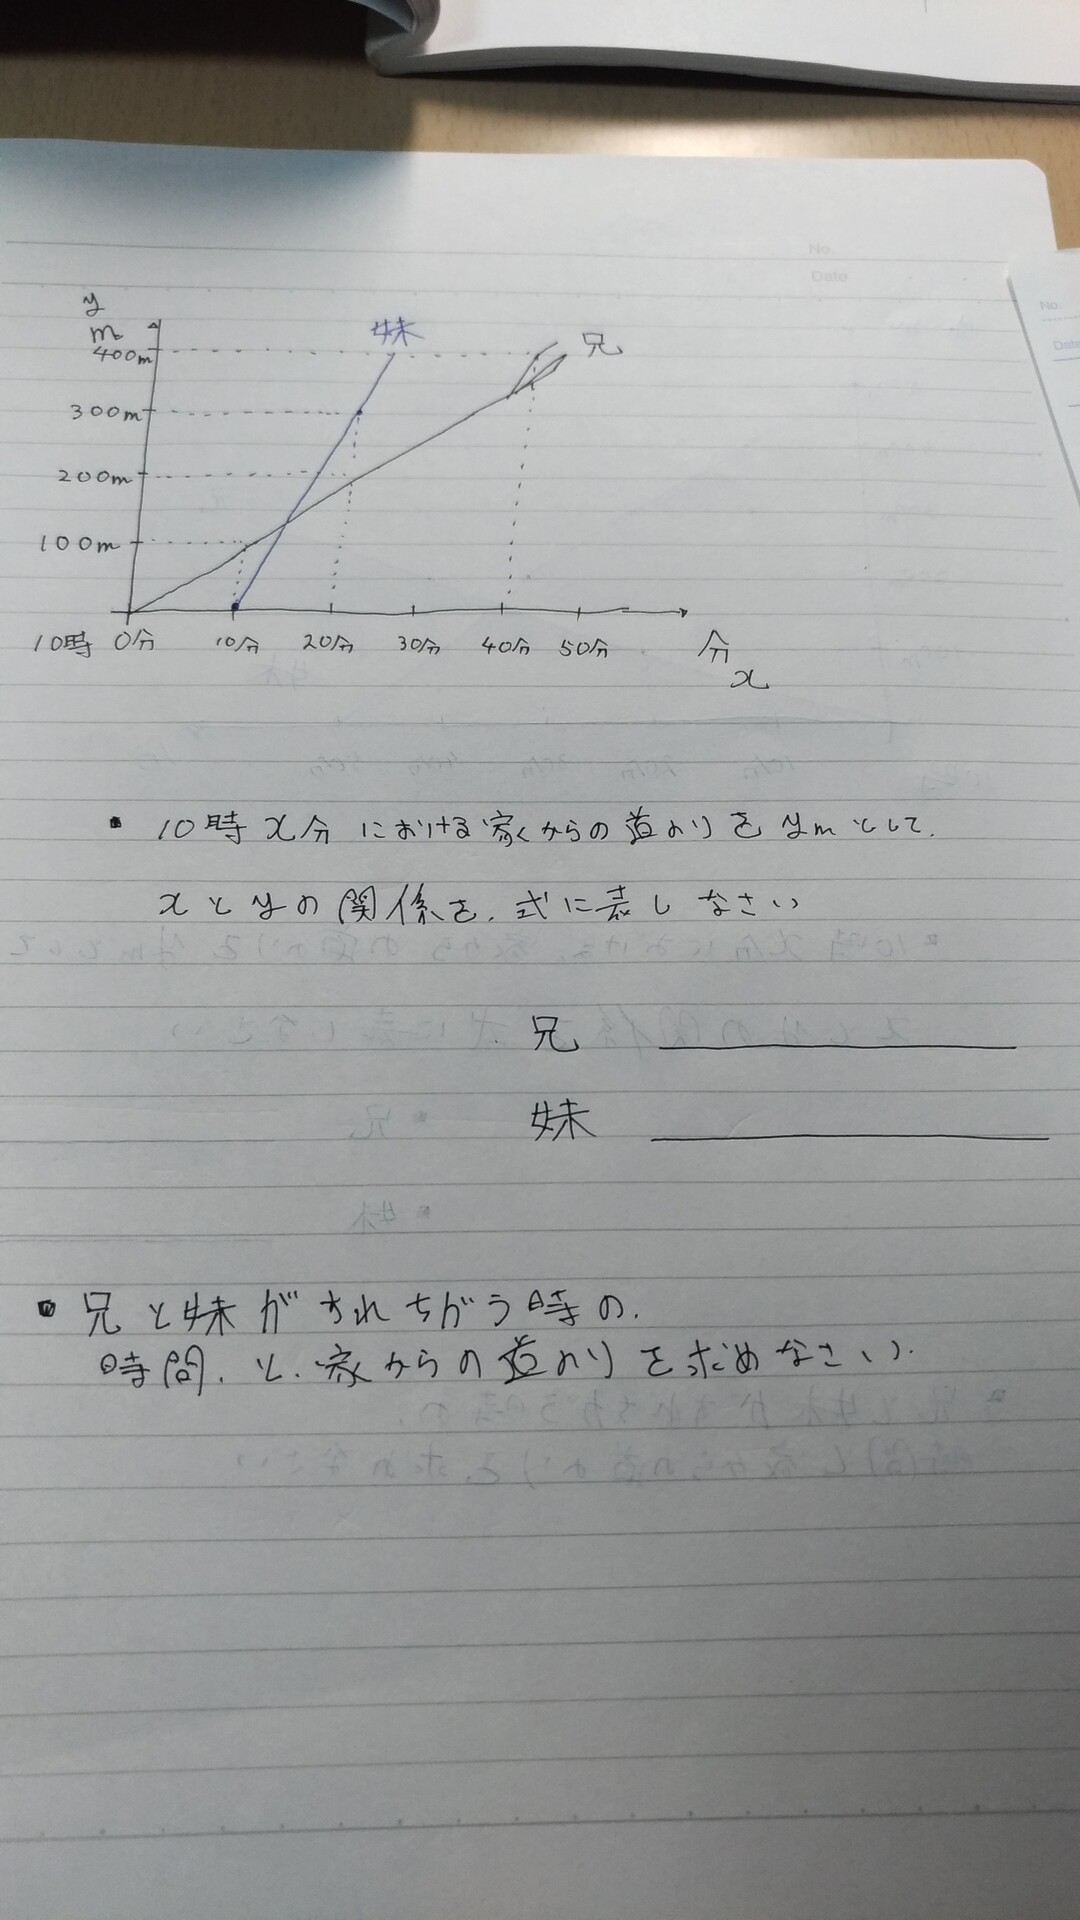 No.
Date
No.
Date
y
m
400m
300m
200m
100m
妹
兄
10時 0分 10分 20分 30分 40分 50分 分
x
・10時x分における家からの道のりをymとして、
xとyの関係を、式に表しなさい
兄
妹
・兄と妹がすれちがう時の、
時間、と、家からの道のりを求めなさい。